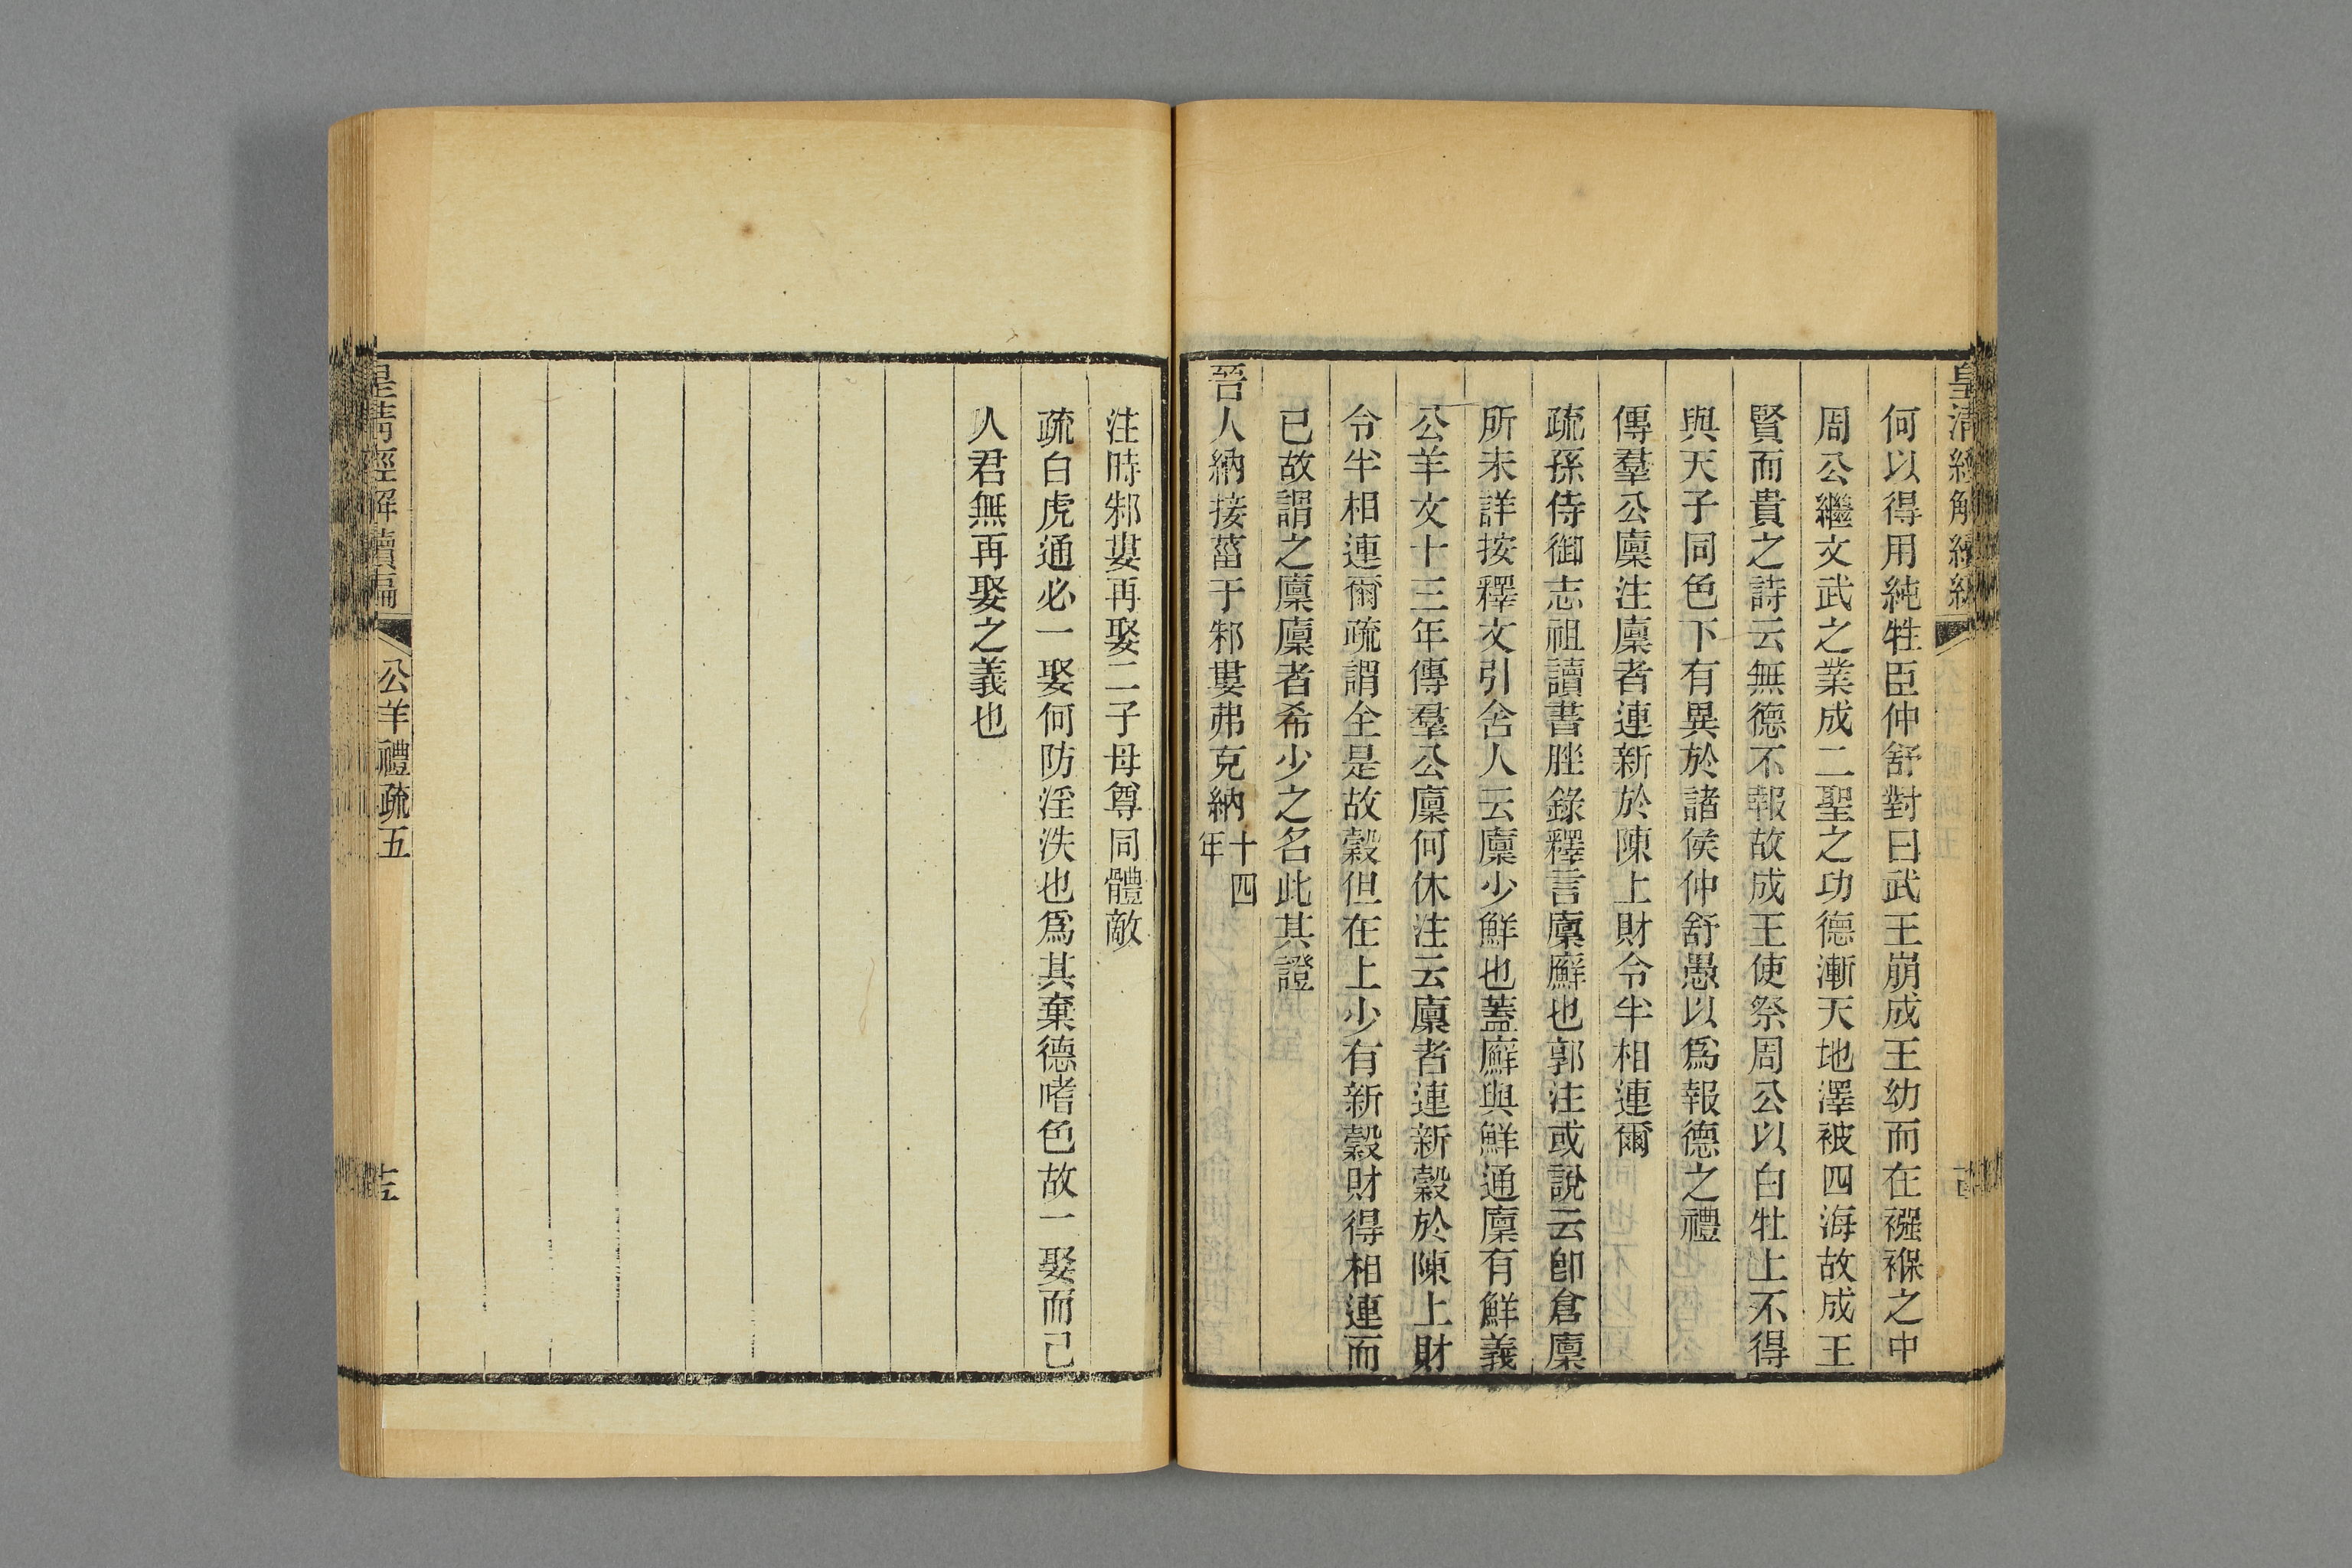 皇清經解續編
何以得用純牲臣仲舒對曰武王崩成王幼而在襁褓之中
周公繼文武之業成二聖之功德漸天地澤被四海故成王
賢而貴之詩云無德不報故成王使祭周公以白牡上不得
與天子同色下有異於諸侯仲舒愚以爲報德之禮
傳羣公廩注廩者連新於陳上財令半相連爾
疏孫侍御志祖讀書脞錄釋言廩廯也郭注或說云卽倉廩
所未詳按釋文引舍人云廩少鮮也蓋廯與鮮通廩有鮮義
公羊文十三年傳羣公廩何休注云廩者連新穀於陳上財
令半相連爾疏謂全是故穀但在上少有新穀財得相連而
已故謂之廩廩者希少之名此其證
晉人納接菑于邾婁弗克納十四年
注時邾婁再娶二子母尊同體敵
疏白虎通必一娶何防淫泆也爲其棄德嗜色故一娶而己
人君無再娶之義也
皇清經解續編
公羊禮疏五